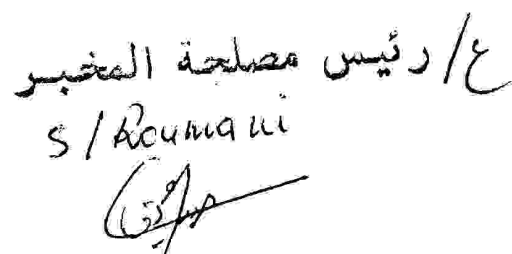 ع/ رئيس مصلحة المخبر
S / Roumani